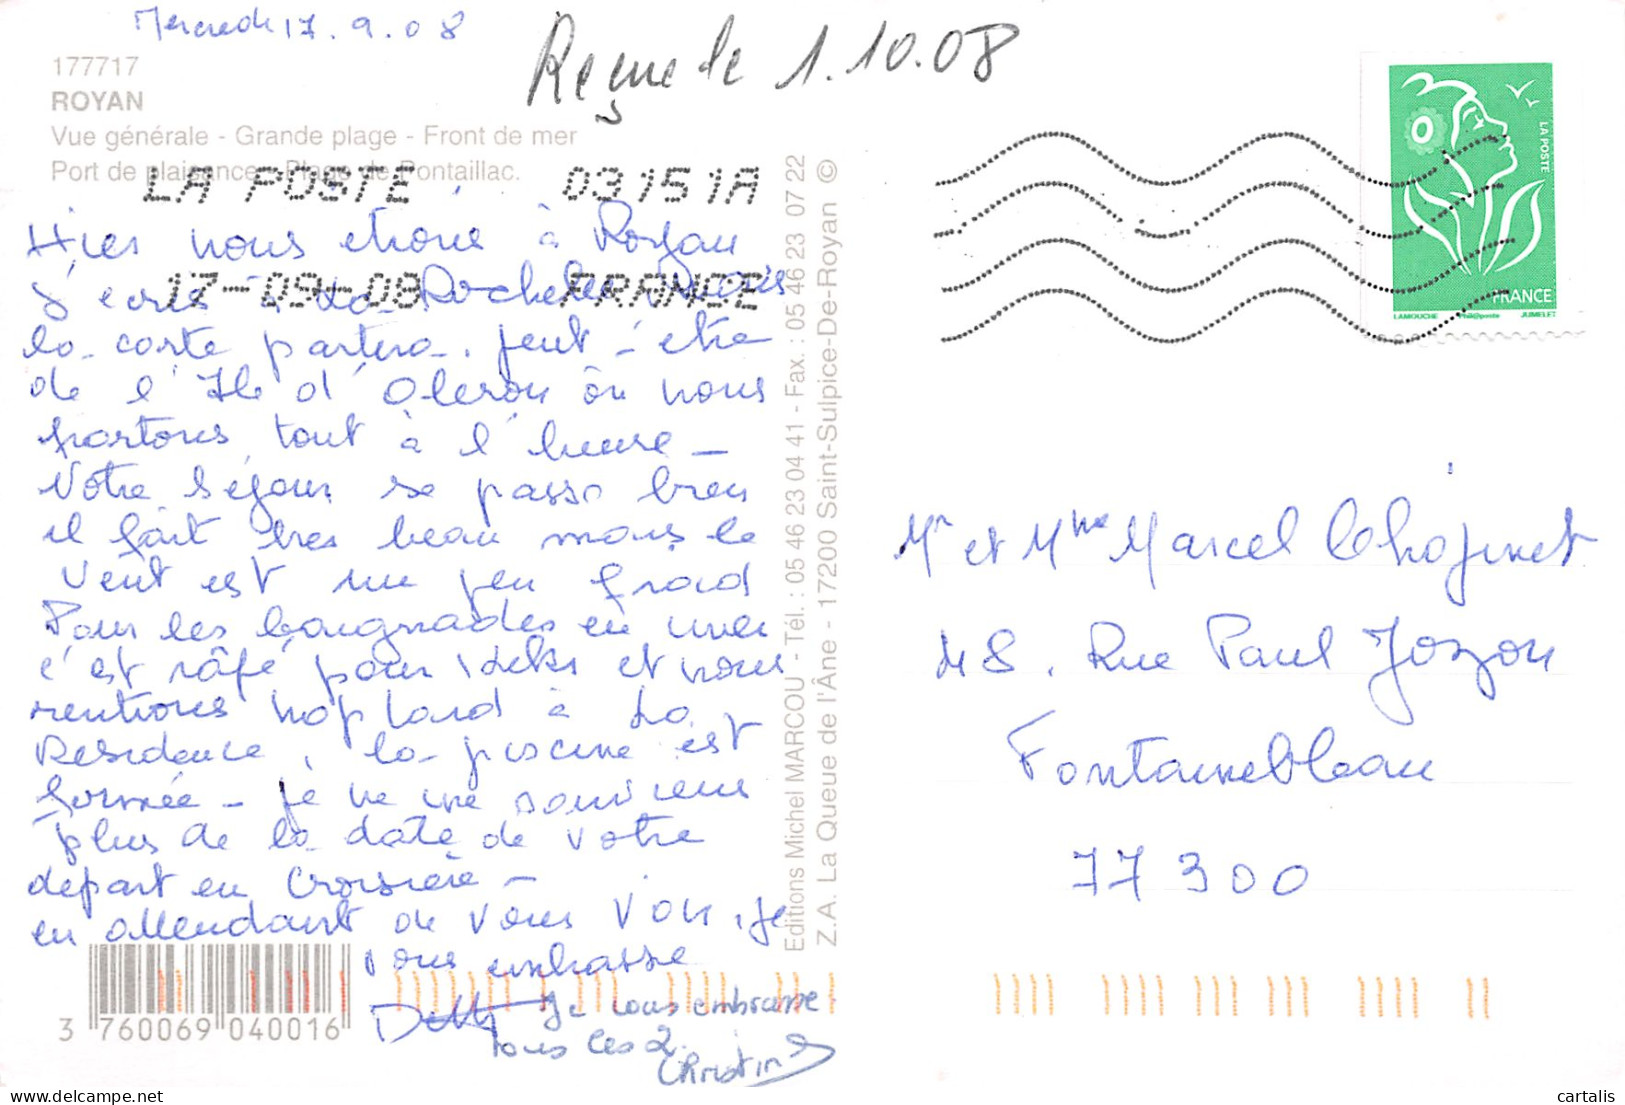 Mercredi 17.9.08
Reçue le 1.10.08
177717
ROYAN
Vue générale - Grande plage - Front de mer
Port de plaisance - Plage de Pontaillac.
LA POSTE 03151A
17-09-08 FRANCE
Hier nous étions à Royan
J'écris à La Rochelle Mais
la carte partira peut-être
de l'Ile d'Oleron où nous
partons tout à l'heure -
Notre séjour se passe bien
il fait très beau mais le
vent est un peu froid
Pour les baignades en mer
c'est râpé pour and et nous
rentrons trop tard à La
Résidence, la piscine est
fermée - je ne me souviens
plus de la date de votre
départ en Croisière -
en attendant de vous voir, je
vous embrasse
Je vous embrasse
tous les 2.
Christine
Editions Michel MARCOU - Tél. : 05 46 23 04 41 - Fax. : 05 46 23 07 22
Z.A. La Queue de l'Âne - 17200 Saint-Sulpice-De-Royan ©
3 760069 040016
LA POSTE
FRANCE
LAMOUCHE Phil@poste JUMELET
Mr et Mme Marcel Chojinet
48. Rue Paul Jozon
Fontainebleau
77300
cartalis